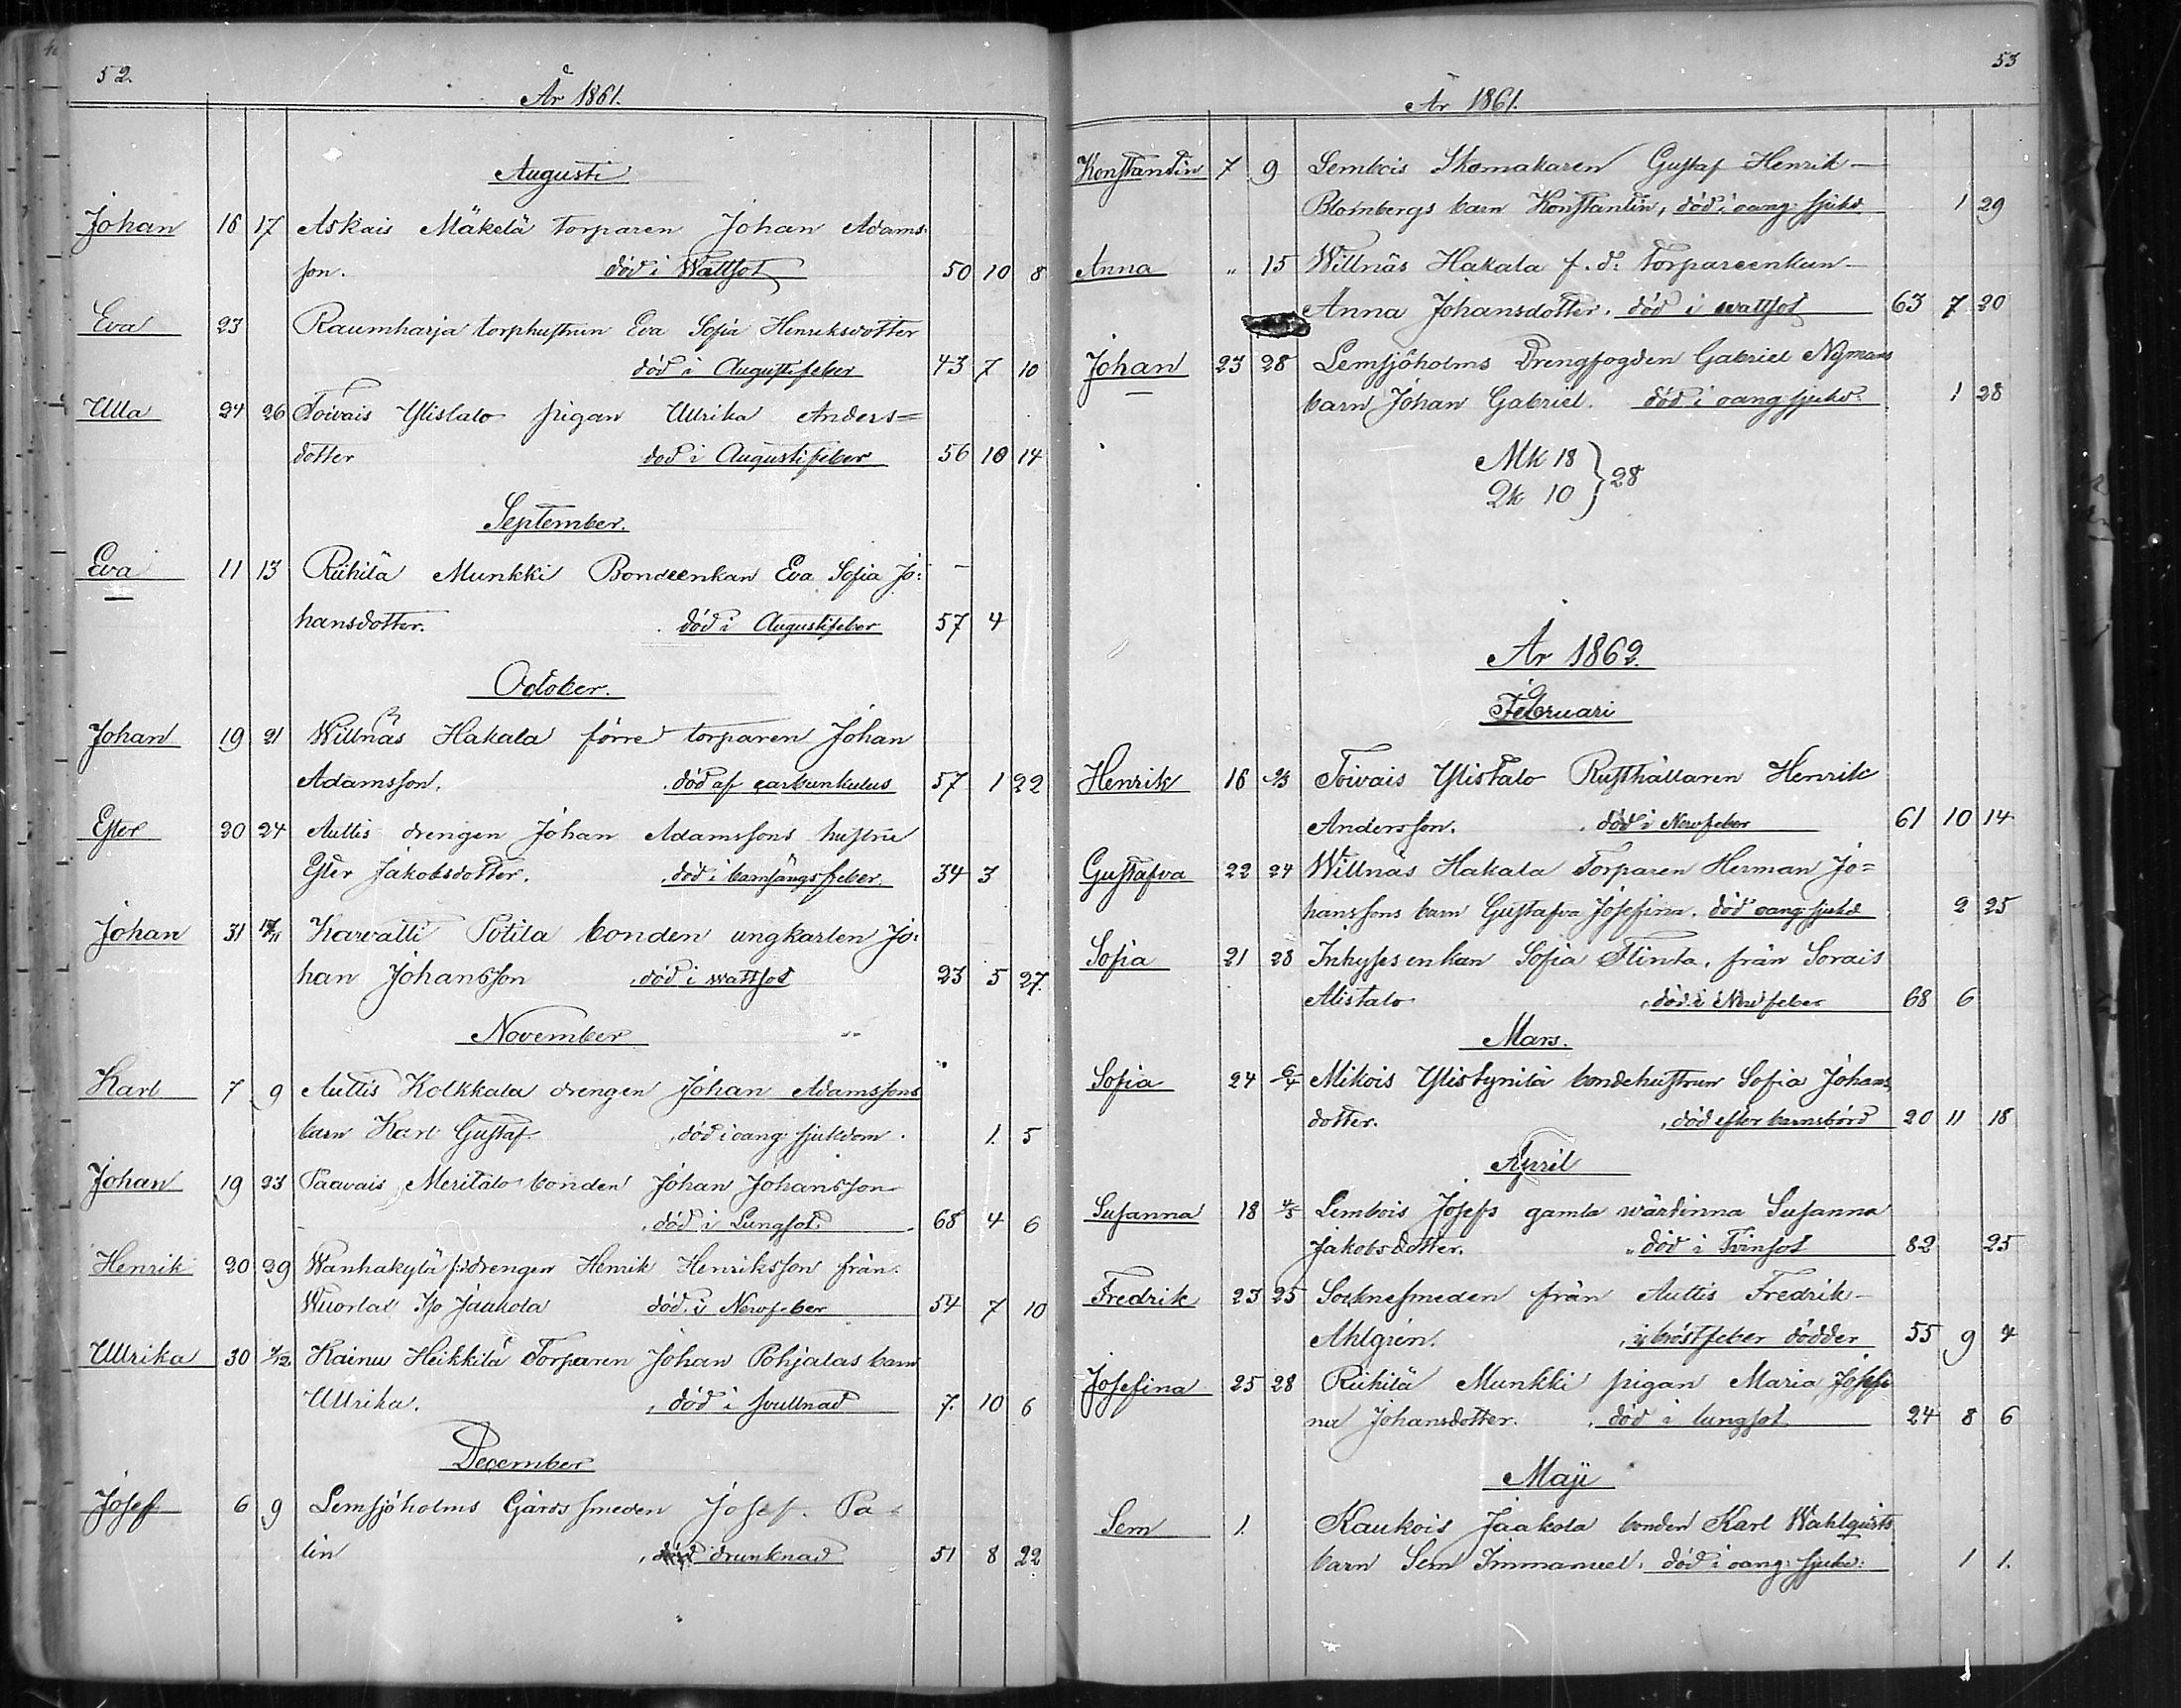 52.
År 1861.
Augusti
Johan 16 17 Askais Mäkelä torparen Johan Adams-
son. död i Wattsot 50 10 8
Eva 23 Raumharja torphustrun Eva Sofia Henriksdotter
död i Augustifeber 43 7 10
Ulla 24 26 Toivais Ylistalo pigan Ullrika Anders=
dotter död i Augustifeber 56 10 14
September.
Eva 11 13 Riihilä Munkki Bondeenkan Eva Sofia Jo-
hansdotter. död i Augustifeber 57 4
October.
Johan 19 21 Willnäs Hakala förre torparen Johan
Adamsson. död af carbunkulus 57 1 22
Ester 20 24 Auttis drengen Johan Adamssons hustru
Ester Jakobsdotter. död i barnsängsfeber. 34 3
Johan 31 17/11 Karvatti Sotila bonden ungkarlen Jo-
han Johansson död i wattsot 23 5 27.
November
Karl 7 9 Auttis Kolkkala drengen Johan Adamssons
barn Karl Gustaf. död i oang: sjukdom. 1. 5
Johan 19 23 Paavais Meritalo bonden Johan Johansson
död i Lungsot. 68 4 6
Henrik 20 29 Wanhakylä f:d drengen Henrik Henriksson från
Wuorlax Iso Jaakola död i Nervfeber 54 7 10
Ullrika 30 1/12 Kainu Heikkilä Torparen Johan Pohjalas barn
Ullrika. död i svullnad 7. 10 6
December
Josef 6 9 Lemsjöholms Gårdssmeden Josef Pa-
lin drunknad 51 8 22
53
År 1861.
Konstantin 7 9 Lembois Skomakaren Gustaf Henrik
Blombergs barn Konstantin, död i oang: sjukd 1 29
Anna " 15 Willnäs Hakala f. d: Torpareenkan
Anna Johansdotter. död i wattsot 63 7 20
Johan 23 28 Lemsjöholms Drengfogden Gabriel Nymans
barn Johan Gabriel. död i oang sjukd. 1 28
Mk 18
Qk 10 } 28
År 1862.
Februari
Henrik 16 23 Toivais Ylistalo Rusthållaren Henrik
Andersson. död i Nervfeber 61 10 14
Gustafva 22 24 Willnäs Hakala Torparen Herman Jo=
hanssons barn Gustafva Josefina. död oang: sjukd 2 25
Sofia 21 28 Inhysesenkan Sofia Flinta, från Sorais
Alistalo död i Nervfeber 68 6
Mars.
Sofia 24 6/4 Mikois Ylistynilä bondehustrun Sofia Johans
dotter. död efter barnsbörd 20 11 18
April
Susanna 18 4/5 Lembois Josefs gamla wärdinna Susanna
Jakobsdotter. död i Tvinsot 82 25
Fredrik 23 25 Socknesmeden från Auttis Fredrik
Ahlgrén. i bröstfeber dödder 55 9 4
Josefina 25 28 Riihilä Munkki pigan Maria Josefi
na Johansdotter. död i lungsot 24 8 6
Maji
Sem 1. Kaukois Jaakola bonden Karl Wahlqvists
barn Sem Immanuel. död i oang: sjukd: 1 1.